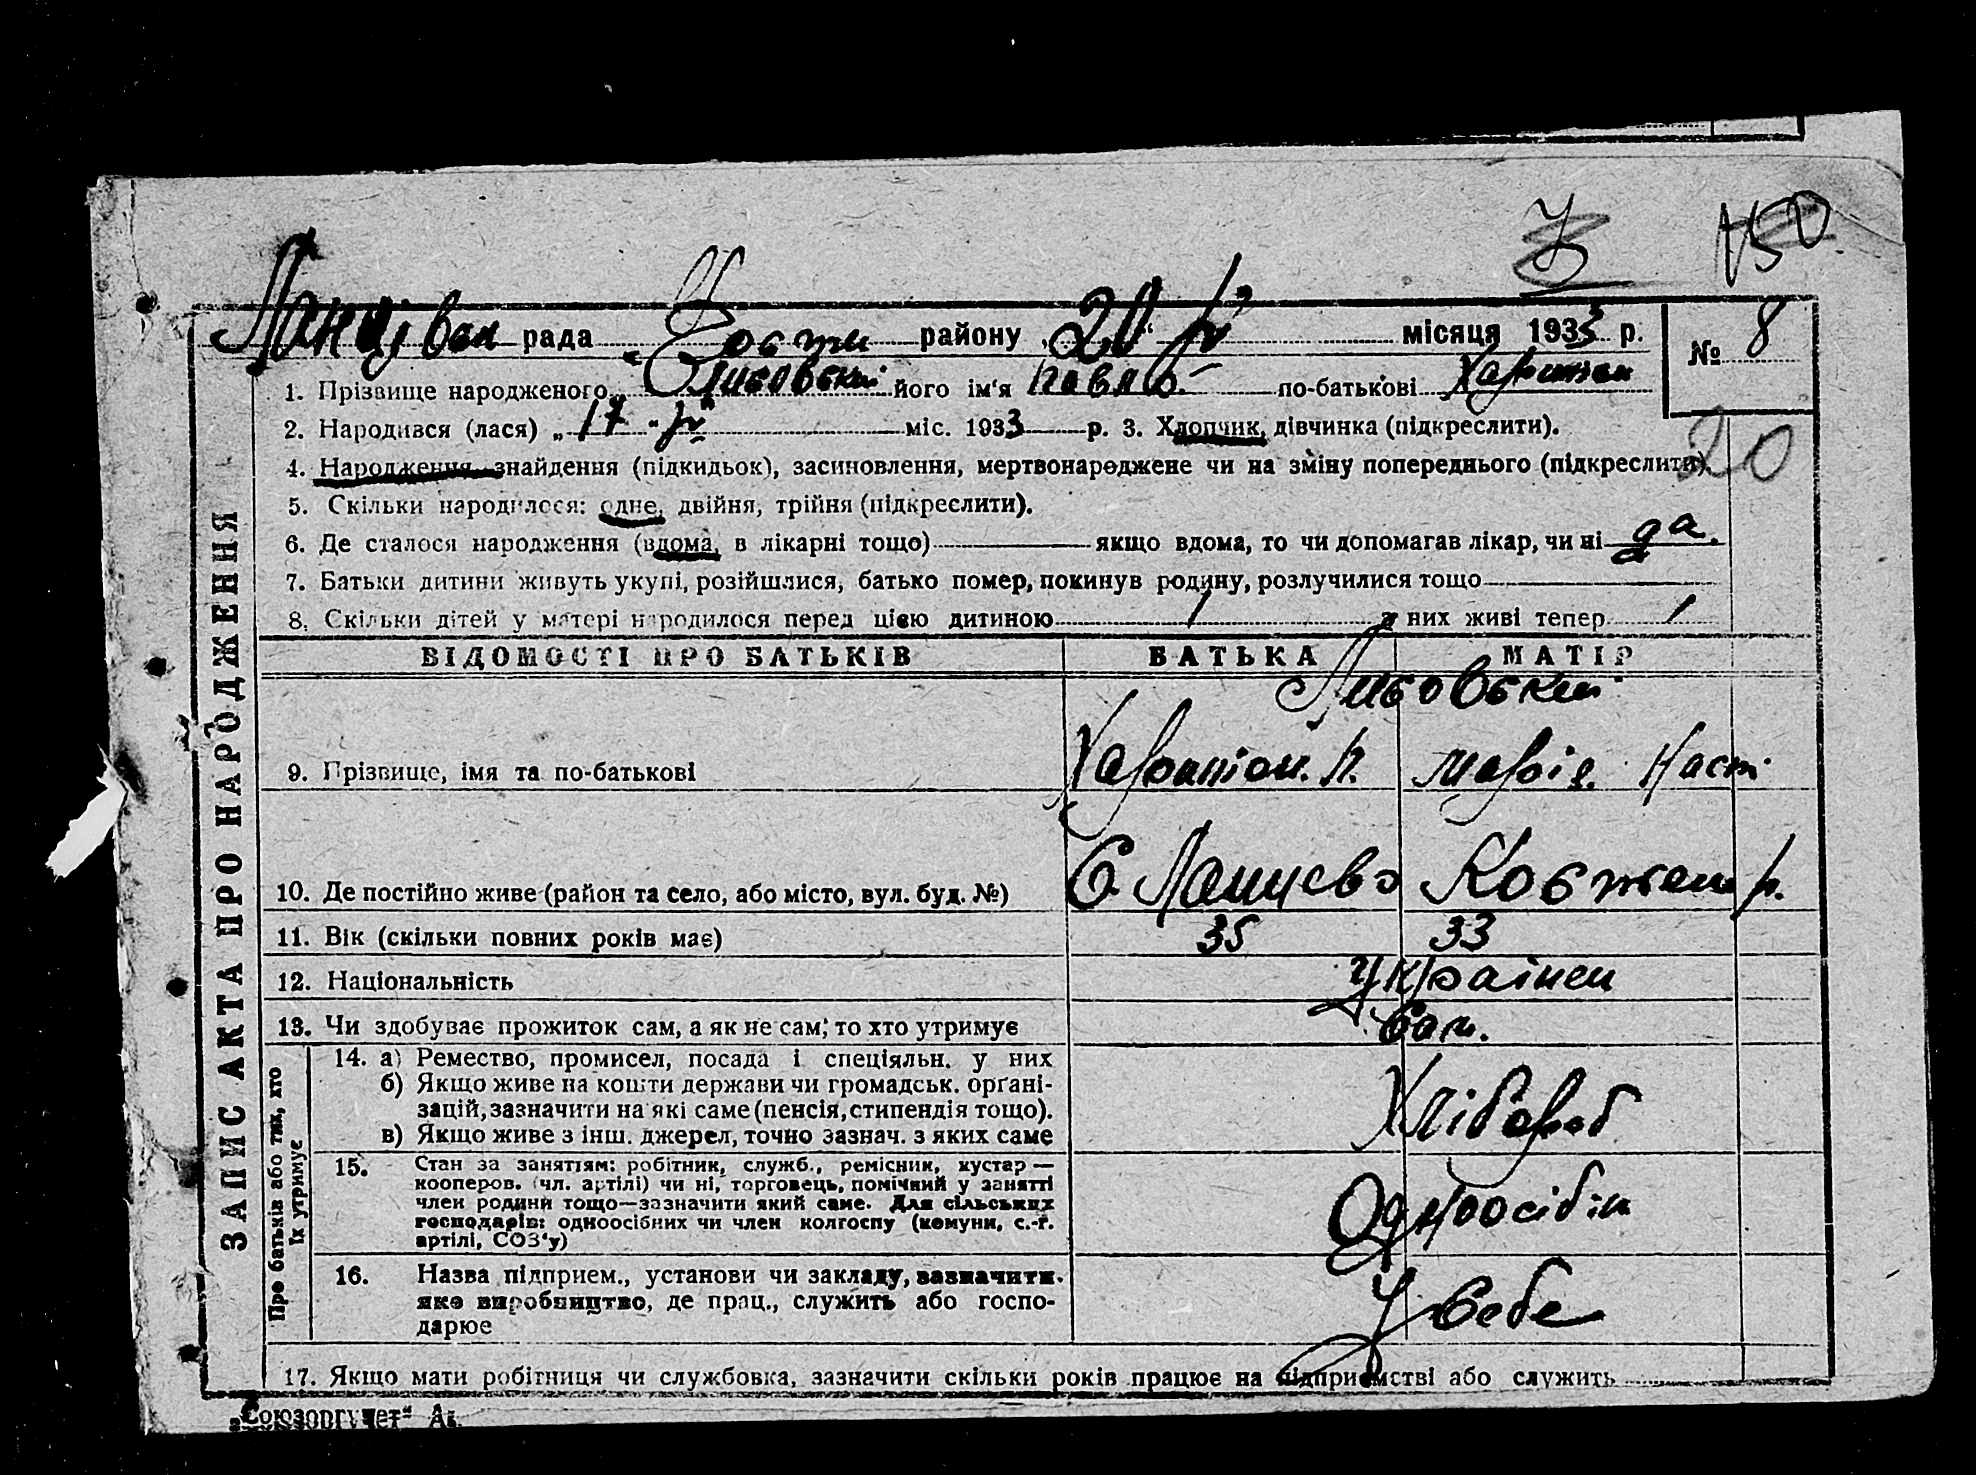 3 150
рада району „20“ IV місяця 1933 р. № 8
1. Прізвище народженого Лисовский його ім'я Павло по-батькові Харитон
2. Народився (лася) „17“ IV міс. 1933 р. 3. Хлопчик, дівчинка (підкреслити).
20
4. Народження, знайдення (підкидьок), засиновлення, мертвонароджене чи на зміну попереднього (підкреслити).
5. Скільки народилося: одне, двійня, трійня (підкреслити).
6. Де сталося народження (вдома, в лікарні тощо) якщо вдома, то чи допомагав лікар, чи ні да.
7. Батьки дитини живуть укупі, розійшлися, батько помер, покинув родину, розлучилися тощо
8. Скільки дітей у матері народилося перед цією дитиною 1 з них живі тепер 1
ЗАПИС АКТА ПРО НАРОДЖЕННЯ
ВІДОМОСТІ ПРО БАТЬКІВ БАТЬКА МАТІР
Лисовский
9. Прізвище, імя та по-батькові Харитон. П. Марія Наст.
10. Де постійно живе (район та село, або місто, вул. буд. №) С. р.
11. Вік (скільки повних років має) 35 33
12. Національність Українци
13. Чи здобуває прожиток сам, а як не сам, то хто утримує Сам.
Про батьків або тих, хто їх утримує
14. а) Ремество, промисел, посада і спеціяльн. у них
б) Якщо живе на кошти держави чи громадськ. орґані-
зацій, зазначити на які саме (пенсія, стипендія тощо).
в) Якщо живе з інш. джерел, точно зазнач. з яких саме
Хлібороб
15. Стан за заняттям: робітник, служб., ремісник, кустар —
кооперов. (чл. артілі) чи ні, торговець, помічний у занятті
член родини тощо—зазначити який саме. Для сільських
господарів: одноосібних чи член колгоспу (комуни, с.-г.
артілі, СОЗ'у)
Одноосібн
16. Назва підприєм., установи чи закладу, зазначити
яке виробництво, де прац., служить або госпо-
дарює
У себе
17. Якщо мати робітниця чи службовка, зазначити скільки років працює на підприємстві або служить
„Союзоргучет“